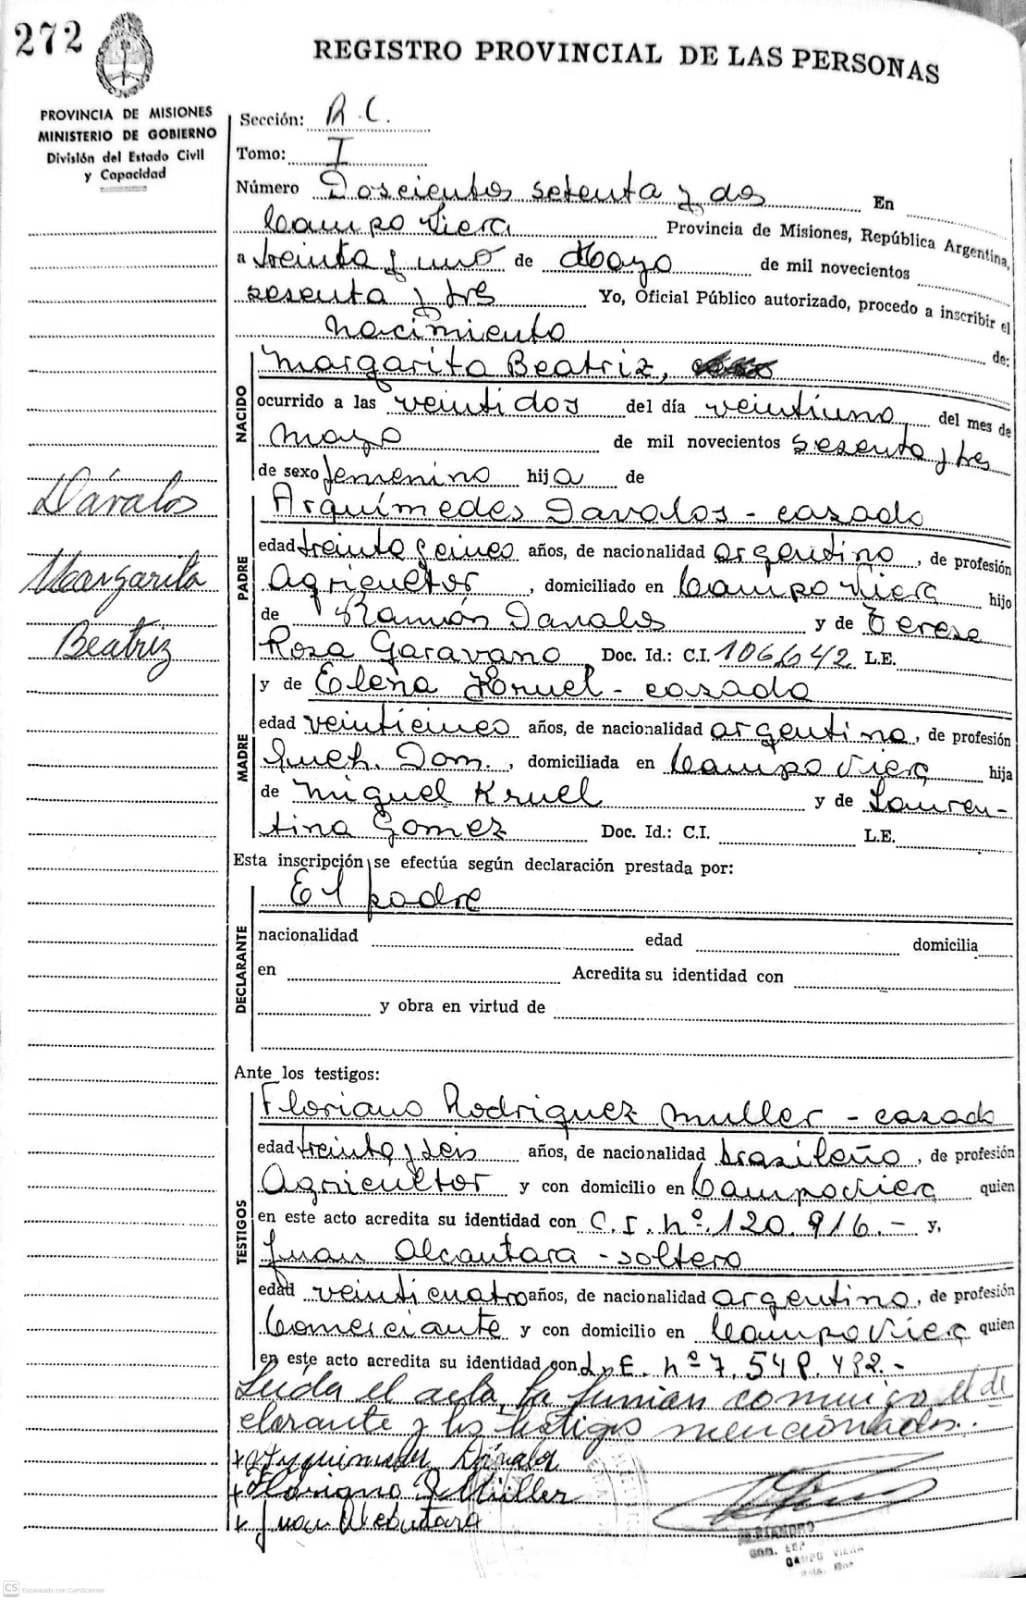 272
REGISTRO PROVINCIAL DE LAS PERSONAS
PROVINCIA DE MISIONES
MINISTERIO DE GOBIERNO
División del Estado Civil
y Capacidad
Sección: R. C.
Tomo: I
Número Doscientos setenta y dos En
Campo Viera Provincia de Misiones, República Argentina,
a treinta y uno de Mayo de mil novecientos
sesenta y tres Yo, Oficial Público autorizado, procedo a inscribir el
nacimiento de:
NACIDO
Margarita Beatriz,
ocurrido a las veintidos del día veintiuno, del mes de
mayo de mil novecientos sesenta y tres
de sexo femenino hija de
Dávalos
Margarita
Beatriz
PADRE
Arquímedes Davalos - casado
edad treinta y cinco años, de nacionalidad argentino, de profesión
Agricultor, domiciliado en Campo Viera hijo
de Ramón Davalos y de Terese
Rosa Garavano Doc. Id.: C.I. 106642 L.E.
y de Elena Kruel - casada
MADRE
edad veinticinco años, de nacionalidad argentina, de profesión
Queh. Dom., domiciliada en Campo Viera hija
de Miguel Kruel y de Lauren-
tina Gomez Doc. Id.: C.I. L.E.
Esta inscripción se efectúa según declaración prestada por:
El padre
DECLARANTE
nacionalidad edad domicilia
en Acredita su identidad con
y obra en virtud de
Ante los testigos:
TESTIGOS
Floriano Rodriguez Muller - casado
edad treinta y seis años, de nacionalidad brasileño, de profesión
Agricultor y con domicilio en Campo Viera quien
en este acto acredita su identidad con C. I. nº. 120.916.- y,
Juan Alcantara - soltero
edad veinticuatro años, de nacionalidad argentino, de profesión
Comerciante y con domicilio en Campo Viera quien
en este acto acredita su identidad con L. E. nº 7.548.482.-
Leída el acta, la firman conmigo, el de
clarante y los testigos mencionados.-
Arquimedes Dávalos
Floriano R Müller
Juan Alcantara
CAMPO VIERA
CS Escaneado con CamScanner